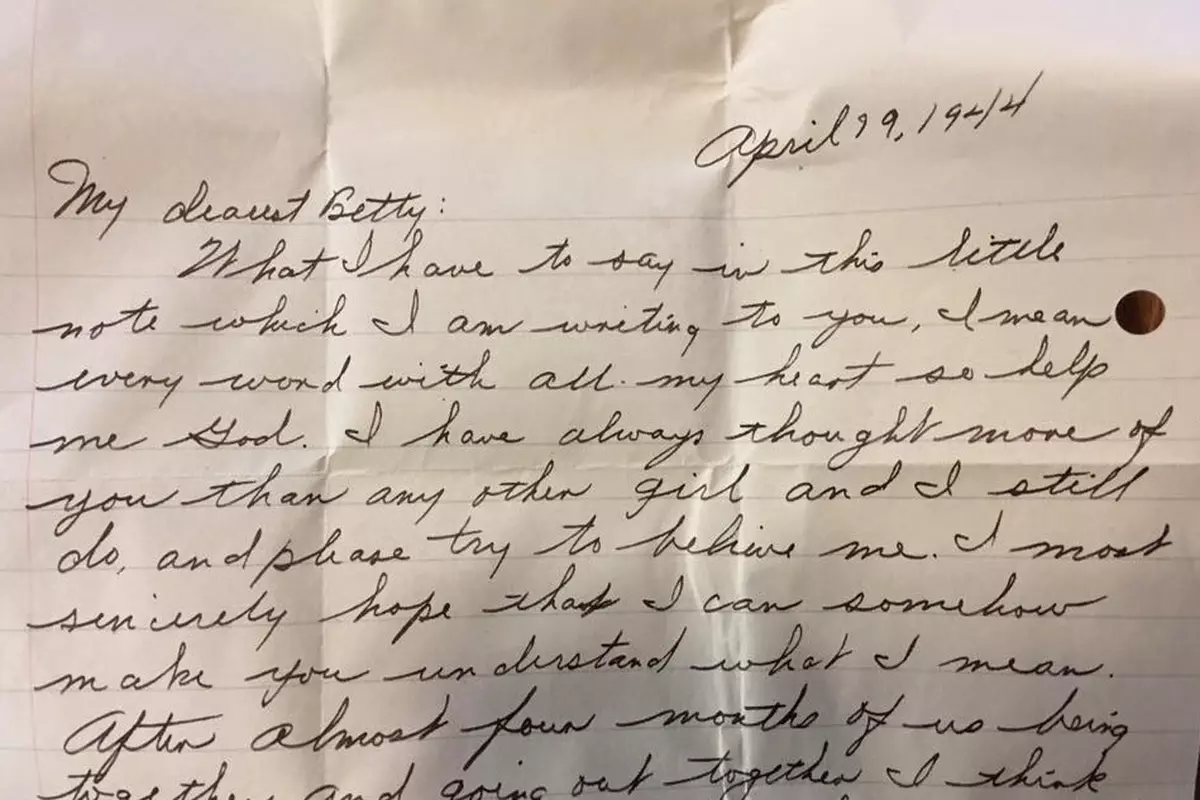 April 19, 1944
My dearest Betty:
What I have to say in this little
note which I am writing to you, I mean
every word with all my heart so help
me God. I have always thought more of
you than any other girl and I still
do, and please try to believe me. I most
sincerely hope that I can somehow
make you understand what I mean.
After almost four months of us being
together and going out together I think